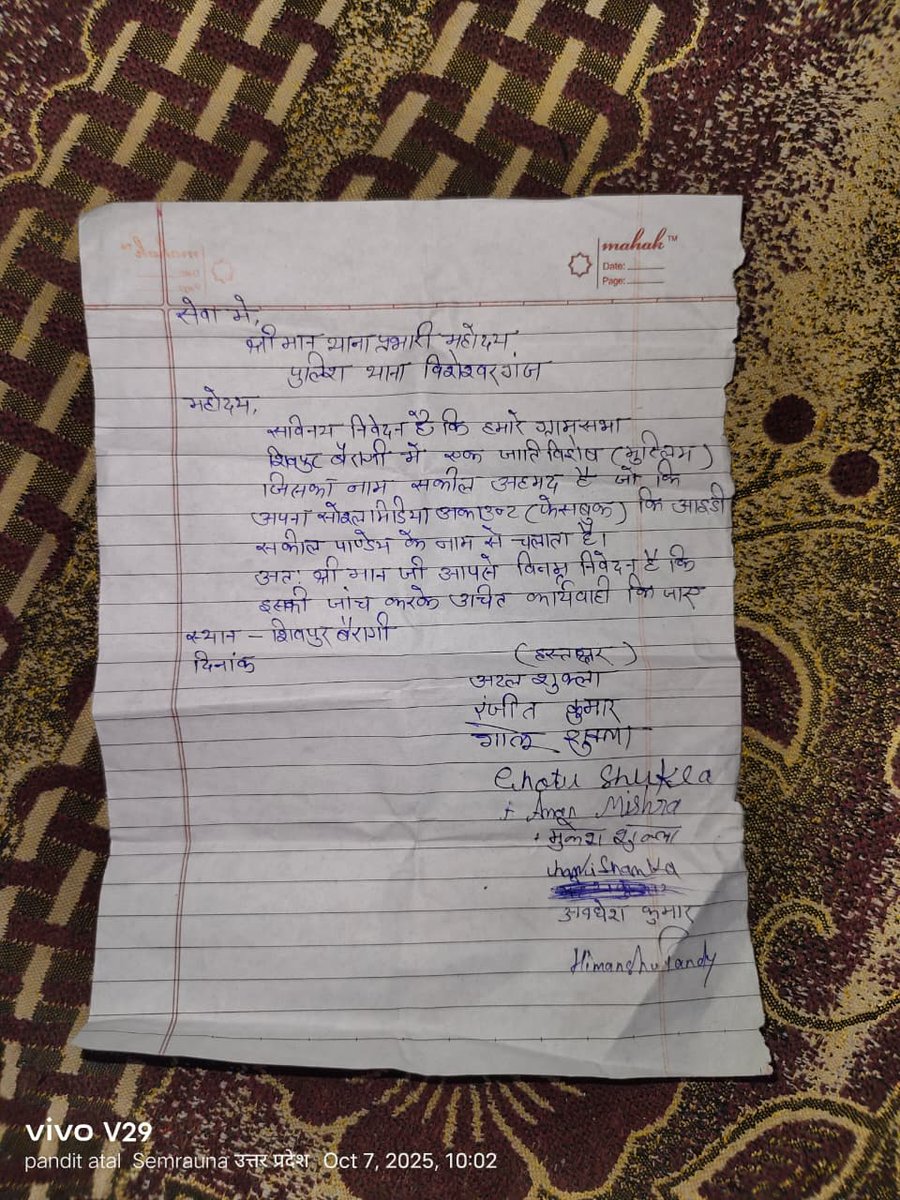 mahak™
Date:
Page:
सेवा मे,
श्री मान थाना प्रभारी महोदय
पुलिश थाना विशेश्वरगंज
महोदय,
सविनय निवेदन है कि हमारे ग्रामसभा
शिवपुर बैरागी में एक जाति विशेष (मुस्लिम)
जिसका नाम सकील अहमद है जो कि
अपना सोशलमिडिया अकाउन्ट (फेसबुक) कि आइडी
सकील पाण्डेय के नाम से चलाता है।
अतः श्री मान जी आपसे विनम्र निवेदन है कि
इसकी जांच करके उचित कार्यवाही कि जाए
स्थान - शिवपुर बैरागी
दिनांक
(हस्ताक्षर)
अटल शुक्ला
रंजीत कुमार
गोलू शुक्ला
Chotu Shukla
+ Aman Mishra
मुकेश शुक्ला
अवधेश कुमार
Himanshu Pandy
vivo V29
pandit atal Semrauna उत्तर प्रदेश Oct 7, 2025, 10:02